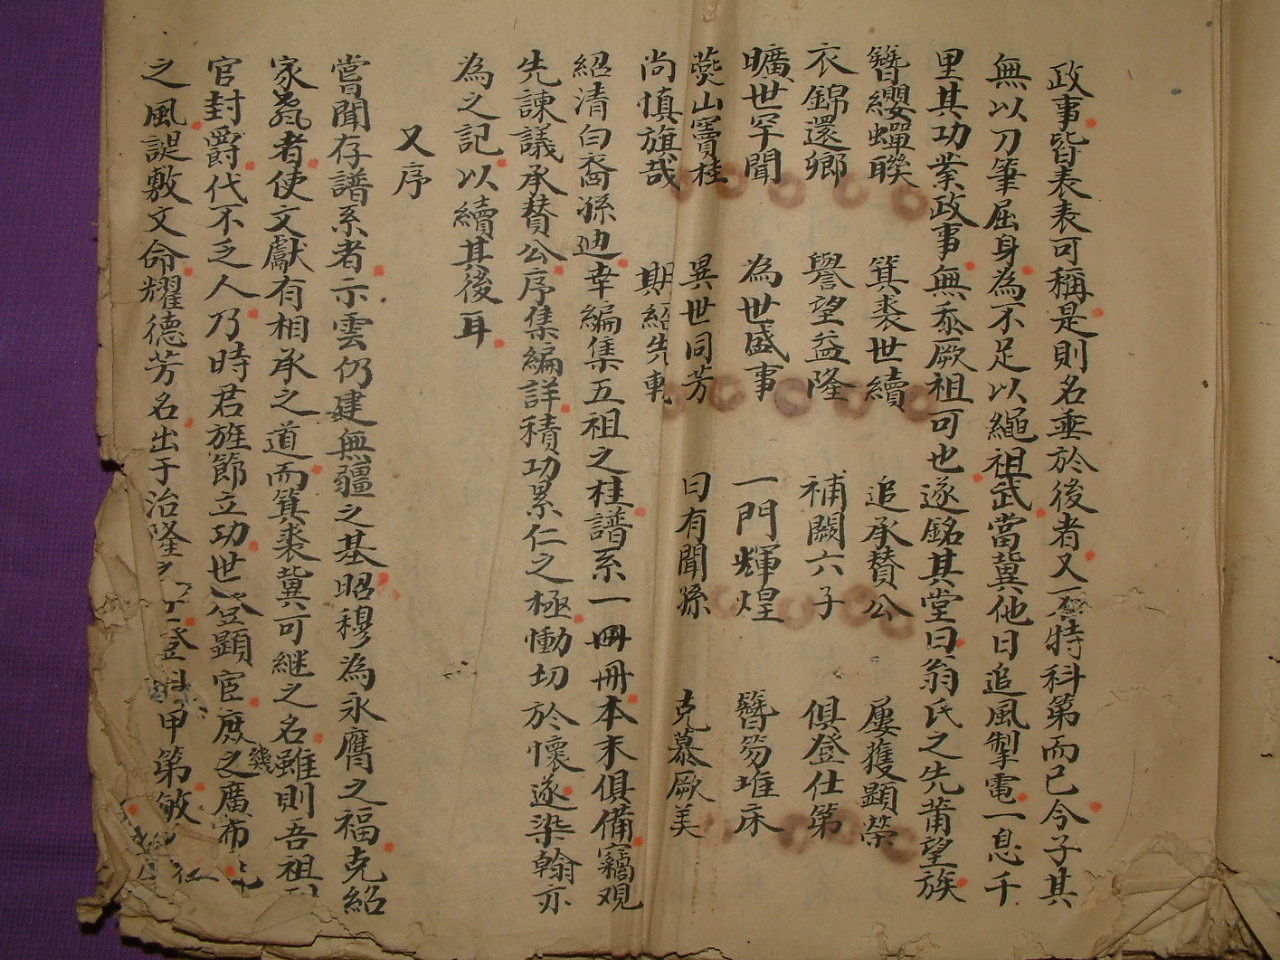 政事皆表表可稱是則名垂於後者又不特科第而已今子其
無以刀筆屈身為不足以繩祖武當冀他日追風掣電一息千
里其功業政事無忝厥祖可也遂銘其堂曰翁氏之先莆望族
簪纓蟬聯 箕裘世續 追承贊公 屢獲顯榮
衣錦還鄉 譽望益隆 補闕六子 俱登仕第
曠世罕聞 為世盛事 一門輝煌 簪笏堆床
燕山竇桂 異世同芳 曰有聞孫 克慕厥美
尚慎旃哉 期紹先軌
紹清白裔孫迪幸編集五祖之桂譜系一冊冊本末俱備竊观
先諫議承贊公序集編詳積功累仁之極慟切於懷遂染翰亦
為之記以續其後耳
又序
嘗聞存譜系者示雲仍建無疆之基昭穆為永膺之福克紹
家者使文獻有相承之道而箕裘冀可継之名雖則吾祖
官封爵代不乏人乃時君旌節立功世登顕宦庶幾之廣布
之風誕敷文命耀德芳名出于治隆登科甲第敏